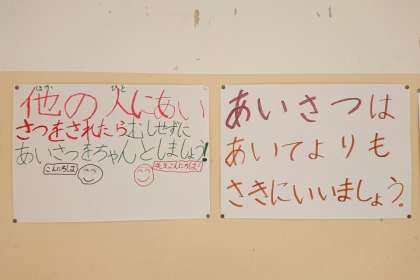 他の人にあい
さつをされたらむしせずに
あいさつをちゃんとしましょう!
こんにちは
あいさつは
あいてよりも
さきにいいましょう。